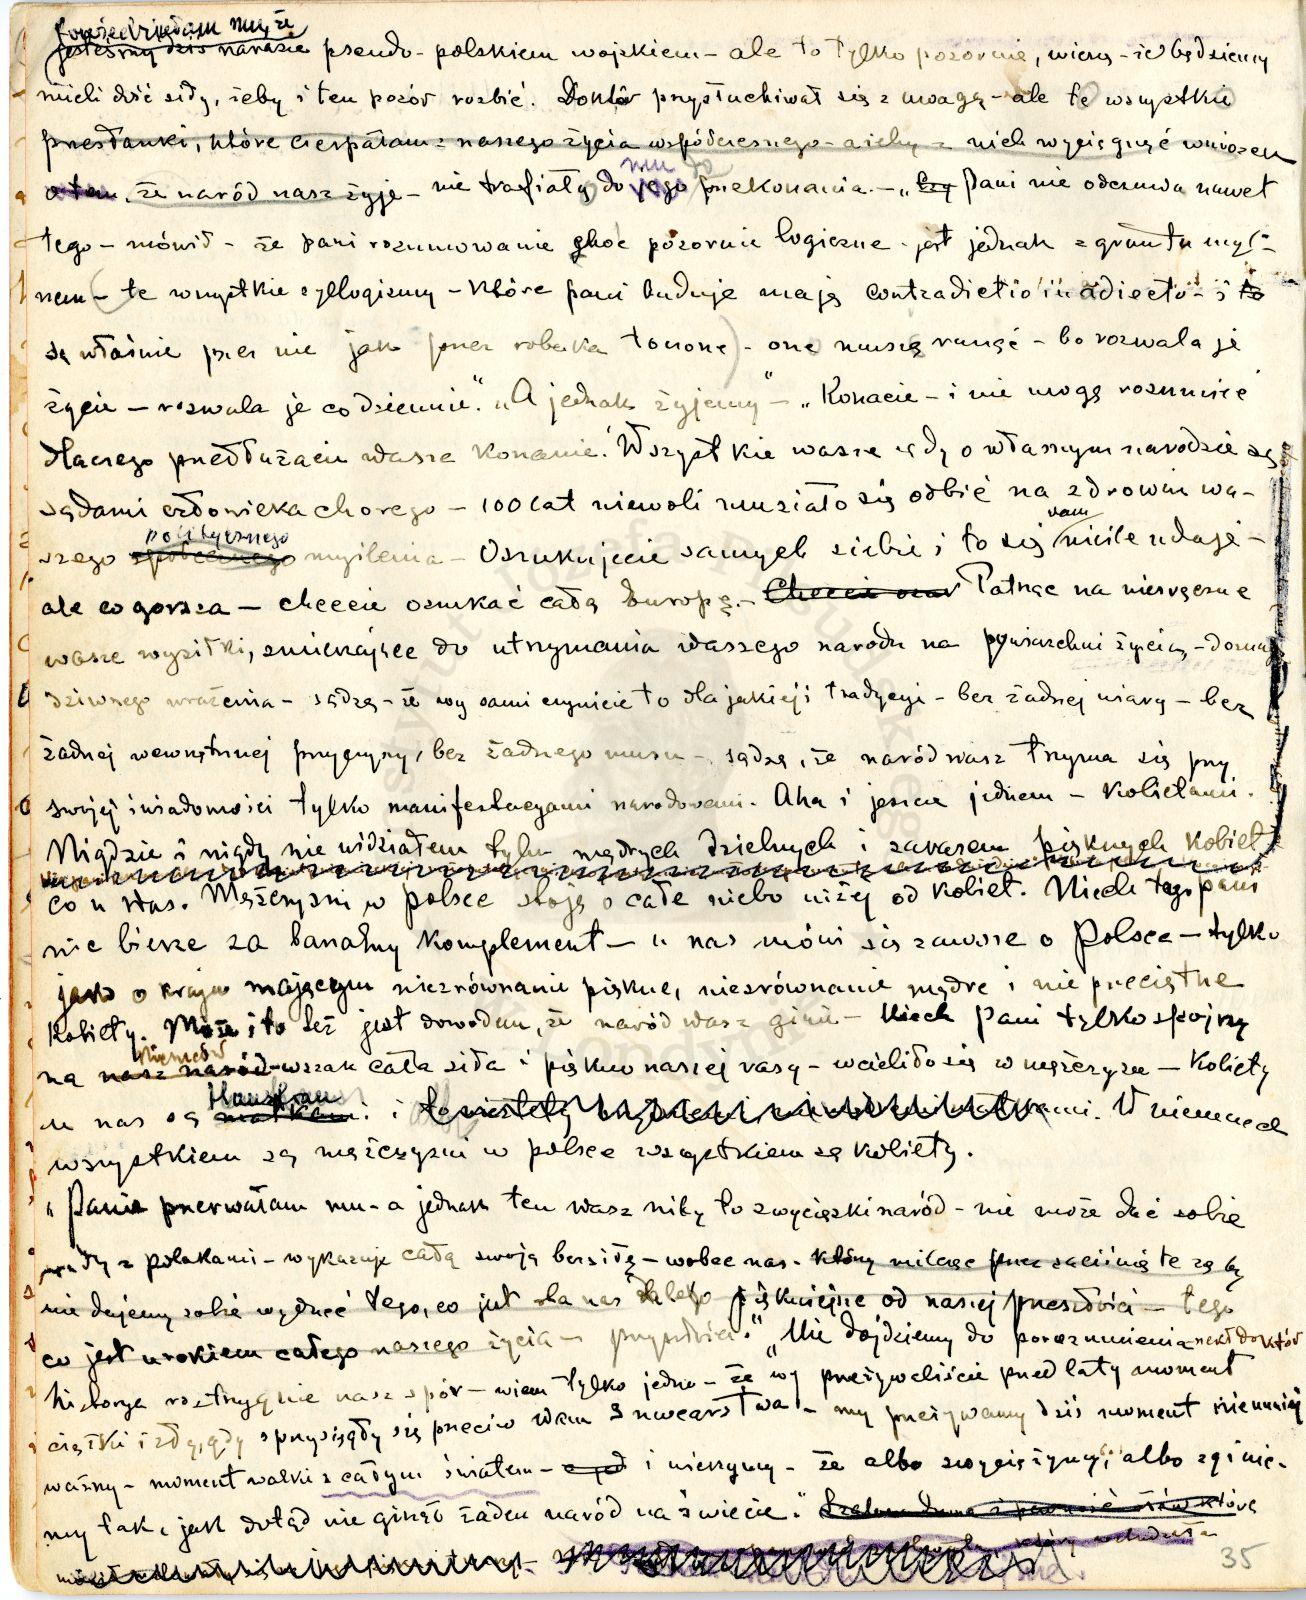 powiedziałam mu, że
jesteśmy dziś narazie pseudo-polskiem wojskiem – ale to tylko pozornie, wierzę – że będziemy
mieli dość siły, żeby i ten pozór rozbić. Doktór przysłuchiwał się z uwagą – ale te wszystkie
przesłanki, które czerpałam z naszego życia współczesnego – ażeby z nich wyciągnąć wniosek
o tem, że naród nasz żyje – nie trafiały mu do jego przekonania. – „Czy Pani nie odczuwa nawet
tego – mówił – że pani rozumowanie choć pozornie logiczne – jest jednak z gruntu myl-
nem – te wszystkie syllogizmy – które pani buduje mają contradictio in adiecto – i to
są właśnie przez nie jak przez robaka toczone) – one muszą runąć – bo rozwala je
życie – rozwala je codziennie." „A jednak żyjemy" – „Konacie – i nie mogę rozumieć
dlaczego przedłużacie wasze konanie. Wszystkie wasze sądy o własnym narodzie są
sądami człowieka chorego – 100 lat niewoli musiało się odbić na zdrowiu wa-
szego społecznego politycznego myślenia – Oszukujecie samych siebie i to się wam udaje –
ale co gorsza – chcecie oszukać całą Europę. – Patrząc na niesręczne
wasze wysiłki, zmierzające do utrzymania waszego narodu na powierzchni życia, – doznaję
dziwnego wrażenia – sądzę – że wy sami czynicie to dla jakiejś tradycyi – bez żadnej wiary – bez
żadnej wewnętrznej przyczyny, bez żadnego musu – sądzę, że naród wasz trzyma się przy
swojej świadomości tylko manifestacyami narodowemi. Aha i jeszcze jednem – kobietami.
Nigdzie i nigdy nie widziałem tylu mądrych dzielnych i zarazem pięknych kobiet
co u Was. Mężczyźni w polsce stoją o całe niebo niżej od kobiet. Niech tego pani
nie bierze za banalny komplement – u nas mówi się zawsze o Polsce – tylko
jako o kraju mającym niezrównanie piękne, niezrównanie mądre i nieprzeciętne
kobiety. Może i to też jest dowodem, że naród wasz ginie – Niech Pani tylko spojrzy
na nasz naród Niemców – wszak cała siła i piękno naszej rasy – wcieliło się w mężczyzn – Kobiety
u nas są matkami Hausfrau i W niemczech
wszystkiem są mężczyźni w polsce wszystkiem są kobiety.
„Panie przerwałam mu – a jednak ten wasz niby to zwycięski naród – nie może dać sobie
rady z polakami – wykazuje całą swoją bezsiłę – wobec nas – którzy milcząc przez zaciśnięte zęby
nie dajemy sobie wydrzeć tego, co jest dla nas piękniejsze od naszej przeszłości – tego
co jest urokiem całego naszego życia – przyszłości." „Nie dojdziemy do porozumienia – rzekł doktór
historya rozstrzygnie nasz spór – wiem tylko jedno – że wy przeżywaliście przed laty moment
ciężki i zły, gdy sprzysięgły się przeciw Wam 3 mocarstwa – my przeżywamy dziś moment niemniej
ważny – moment walki z całym światem – i wierzymy – że albo zwyciężymy, albo zginie-
my tak, jak dotąd nie ginął żaden naród na świecie."
35